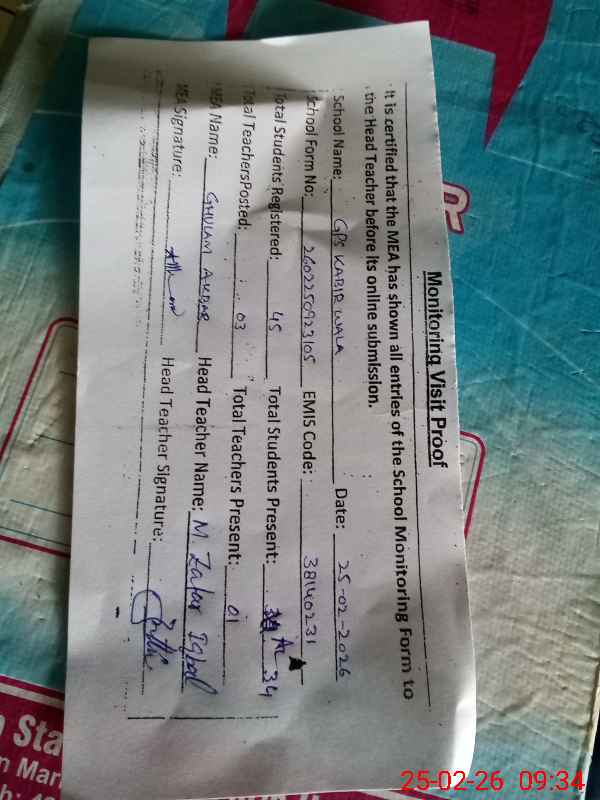 Monitoring Visit Proof
It is certified that the MEA has shown all entries of the School Monitoring Form to
the Head Teacher before its online submission.
School Name: GPS KABIR WALA Date: 25-02-2026
School Form No: 2602250923105 EMIS Code: 38140231
Total Students Registered: 45 Total Students Present: 34
Total TeachersPosted: 03 Total Teachers Present: 01
MEA Name: GHULAM AKBAR Head Teacher Name: M. Zafar Iqbal
MEA Signature: Head Teacher Signature:
Sta
n Mar
25-02-26 09:34